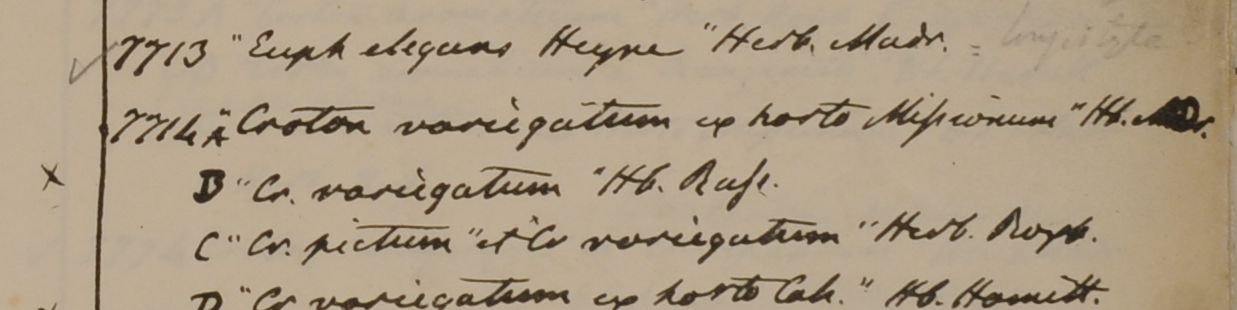 7713 "Euph elegans Heyne" Herb. Madr. =
7714 A "Croton variegatum ex horto Missionum" Hb. Madr.
B "Cr. variegatum" Hb. Russ.
C "Cr. pictum" et "Cr variegatum" Herb. Roxb.
D "Cr variegatum ex horto Calc." Hb. Hamilt.